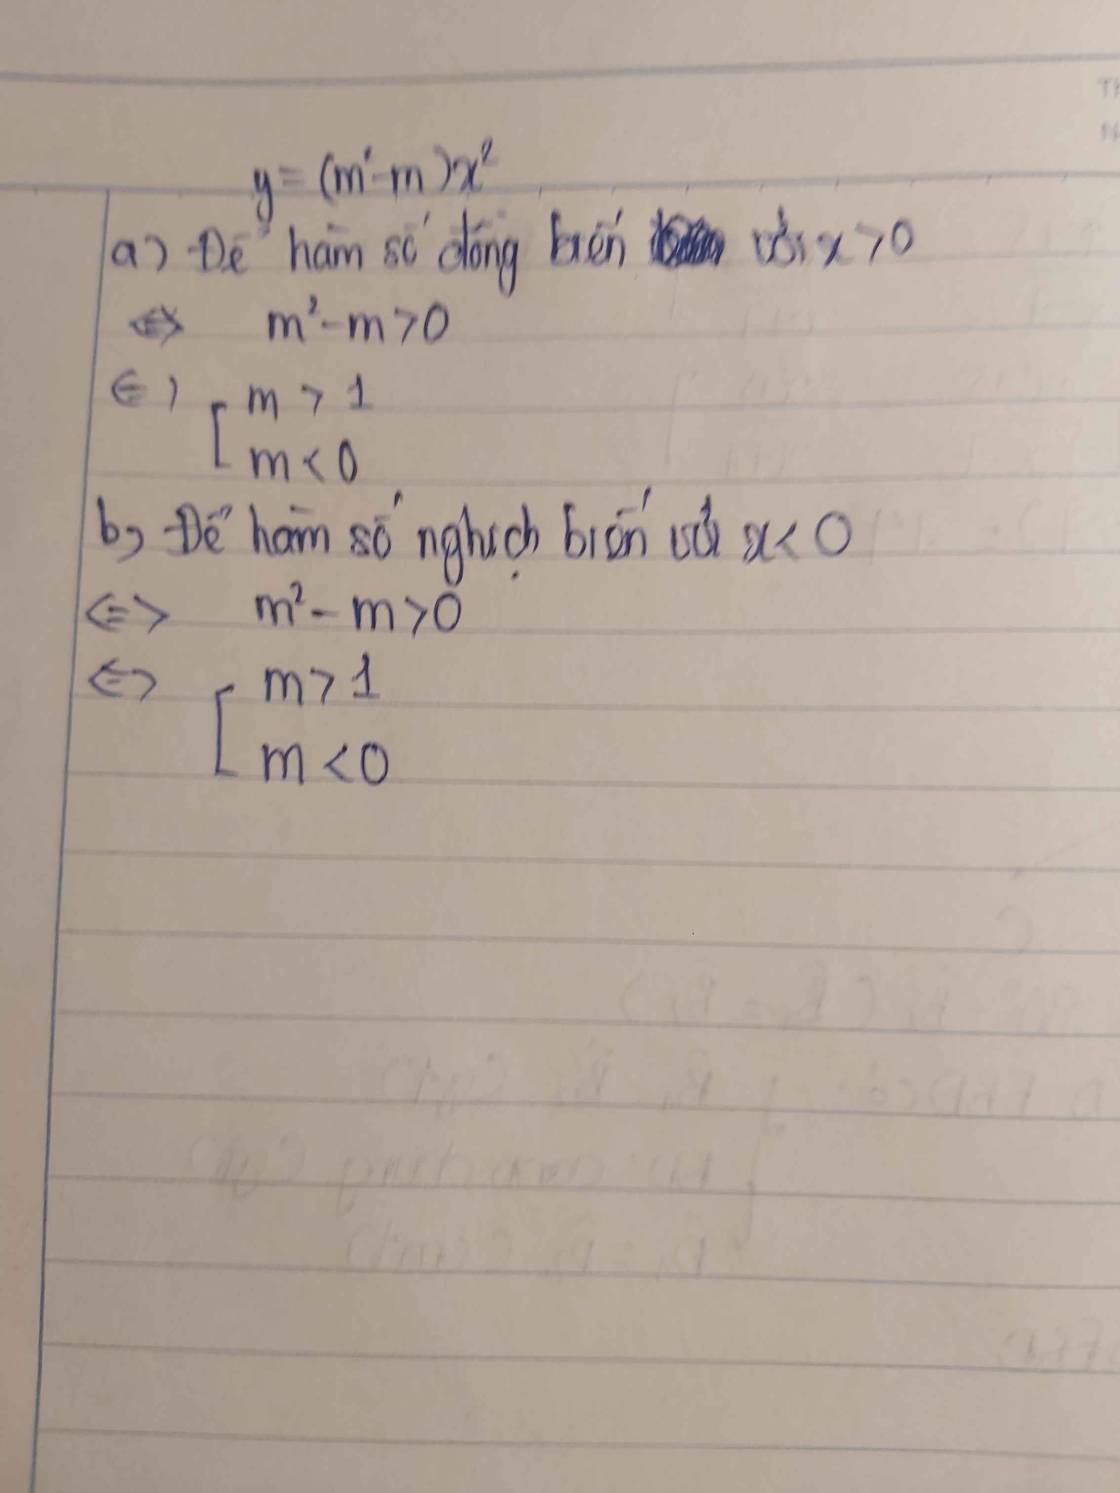 y = (m²-m)x²
a) Để hàm số đồng biến với x > 0
<=> m² - m > 0
<=> [ m > 1
m < 0
b, Để hàm số nghịch biến với x < 0
<=> m² - m > 0
<=> [ m > 1
m < 0